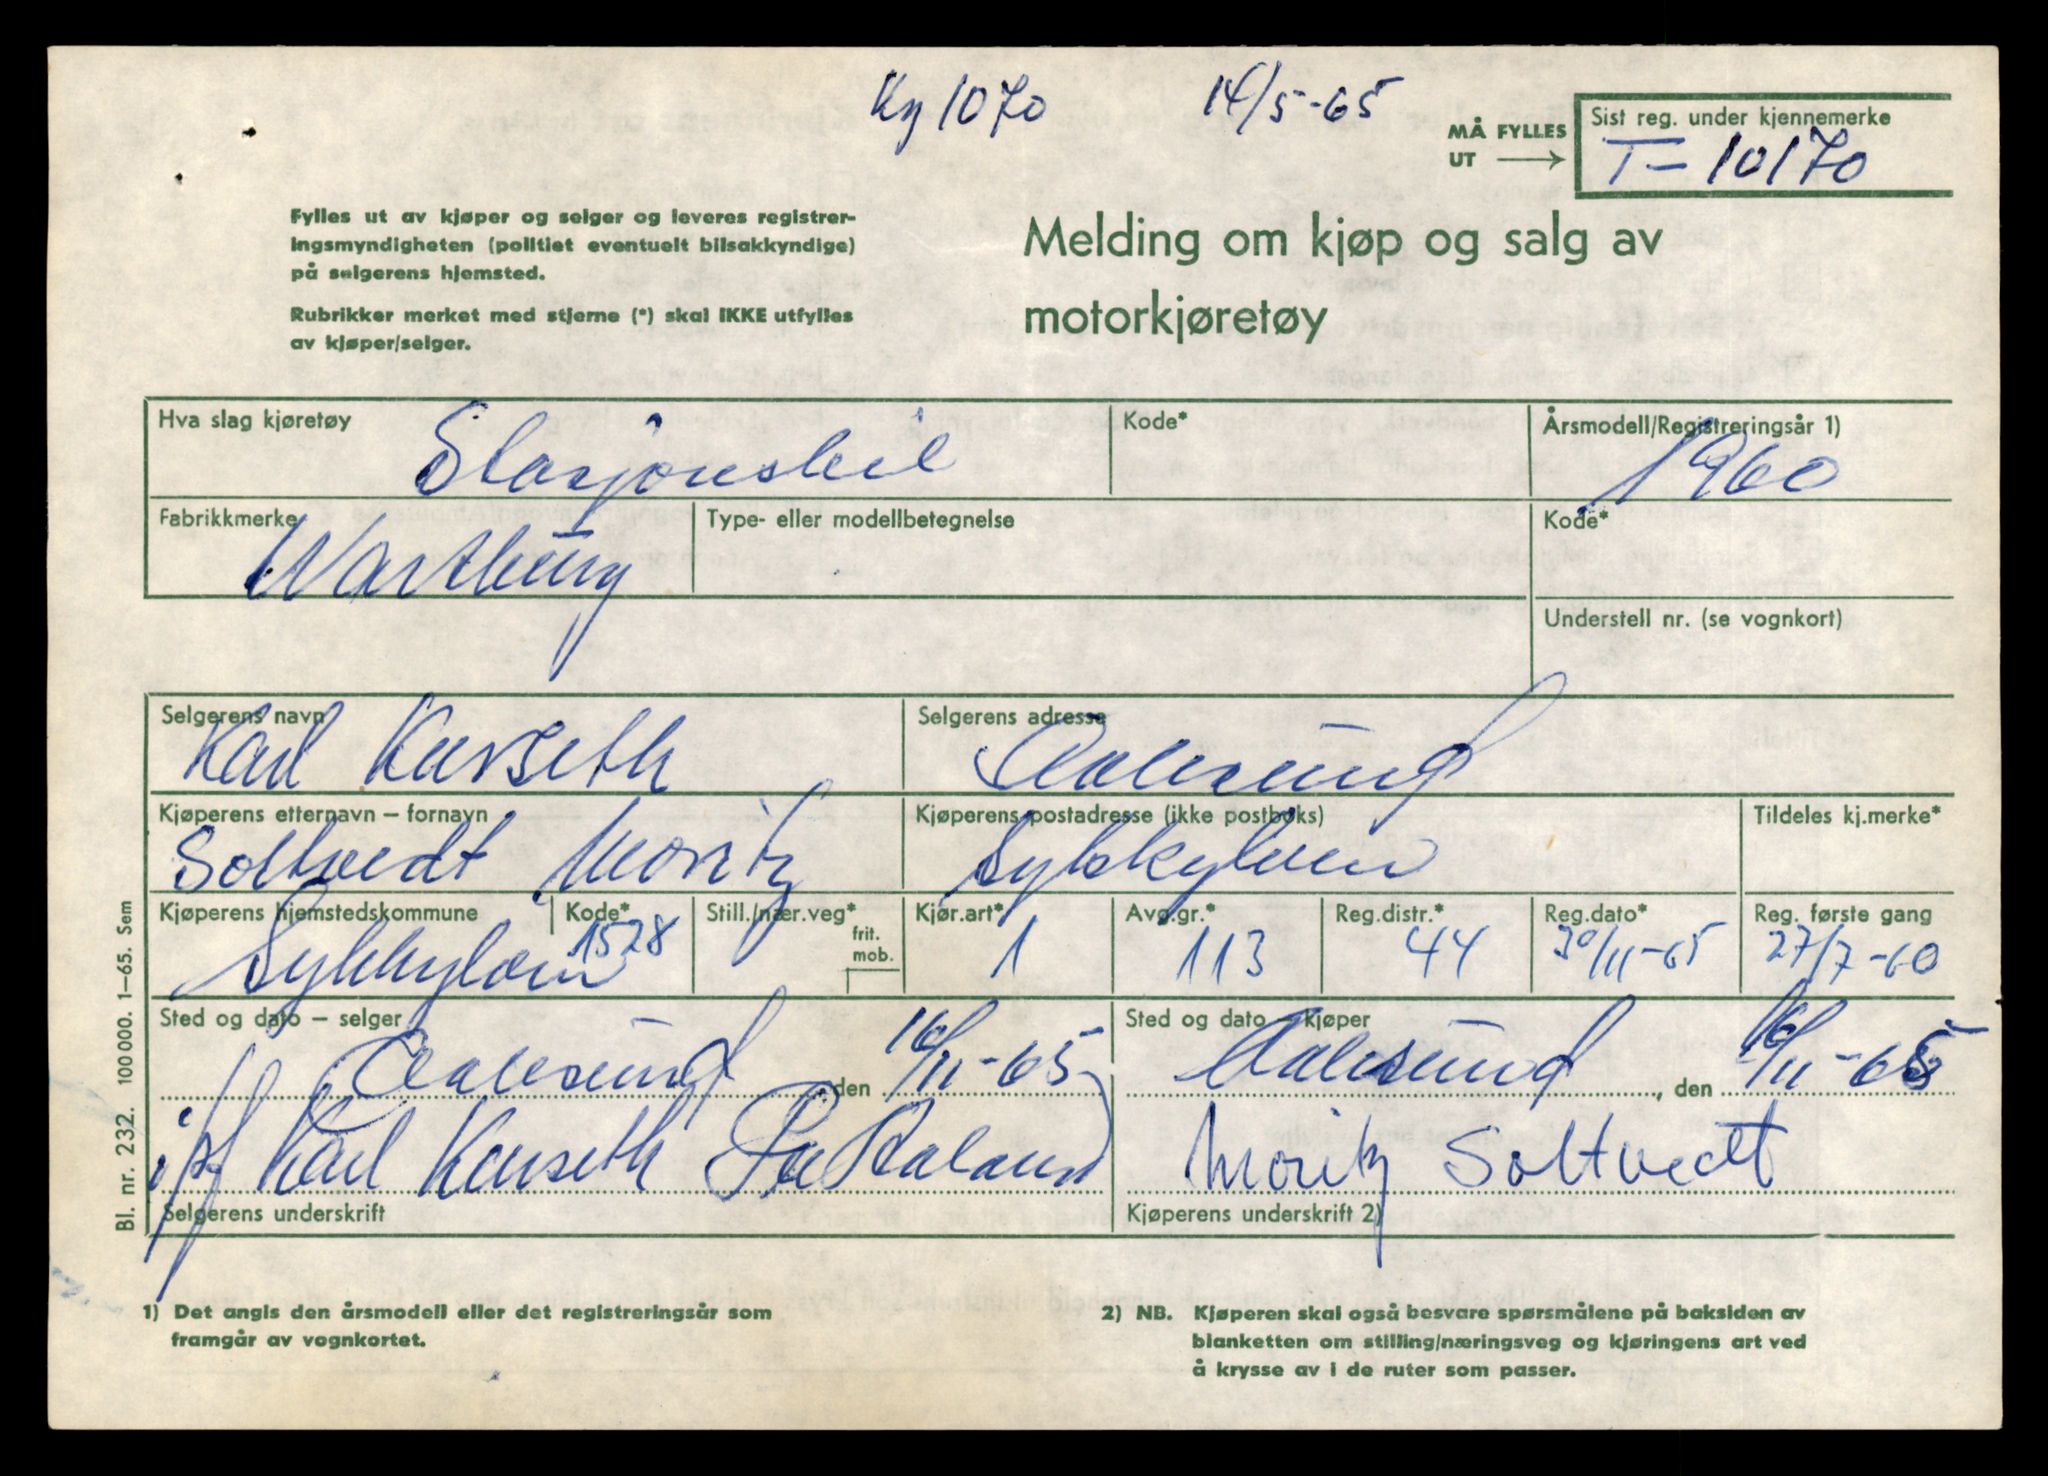 Ky 1070 14/5-65
MÅ FYLLES
UT →
Sist reg. under kjennemerke
T-10170
Fylles ut av kjøper og selger og leveres registrer-
ingsmyndigheten (politiet eventuelt bilsakkyndige)
på selgerens hjemsted.
Rubrikker merket med stjerne (*) skal IKKE utfylles
av kjøper/selger.
Melding om kjøp og salg av
motorkjøretøy
Hva slag kjøretøy Kode* Årsmodell/Registreringsår 1)
Stasjonsbil 1960
Fabrikkmerke Type- eller modellbetegnelse Kode*
Wartburg
Understell nr. (se vognkort)
Selgerens navn Selgerens adresse
Karl Kurseth Aalesund
Kjøperens etternavn – fornavn Kjøperens postadresse (ikke postboks) Tildeles kj.merke*
Soltvedt Moritz Sykkylven
Kjøperens hjemstedskommune Kode* Still./nær.veg* Kjør.art* Avg.gr.* Reg.distr.* Reg.dato* Reg. første gang
frit.
mob.
Sykkylven 1528 1 113 44 30/11-65 27/7-60
Sted og dato – selger Sted og dato – kjøper
Aalesund, den 16/11-65 Aalesund, den 16/11-65
i/f Karl Kurseth Moritz Soltvedt
Selgerens underskrift Kjøperens underskrift 2)
Bl. nr. 232. 100 000. 1–65. Sem
1) Det angis den årsmodell eller det registreringsår som
framgår av vognkortet.
2) NB. Kjøperen skal også besvare spørsmålene på baksiden av
blanketten om stilling/næringsveg og kjøringens art ved
å krysse av i de ruter som passer.